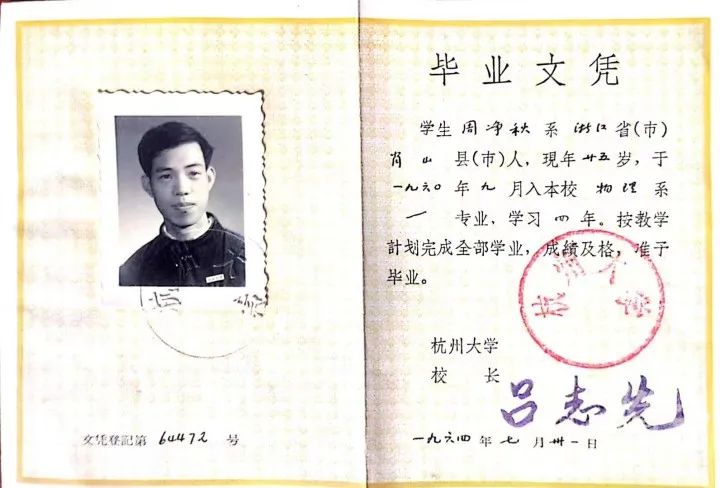 文凭登記第 64472 号
毕业文凭
学生周净秋系浙江省(市)
肖山县(市)人，現年廿五岁，于
一九六〇年九月入本校物理系
一专业，学习四年。按教学
計划完成全部学业，成績及格，准予
毕业。
杭州大学
杭州大学
校长
吕志先
一九六四年七月卅一日